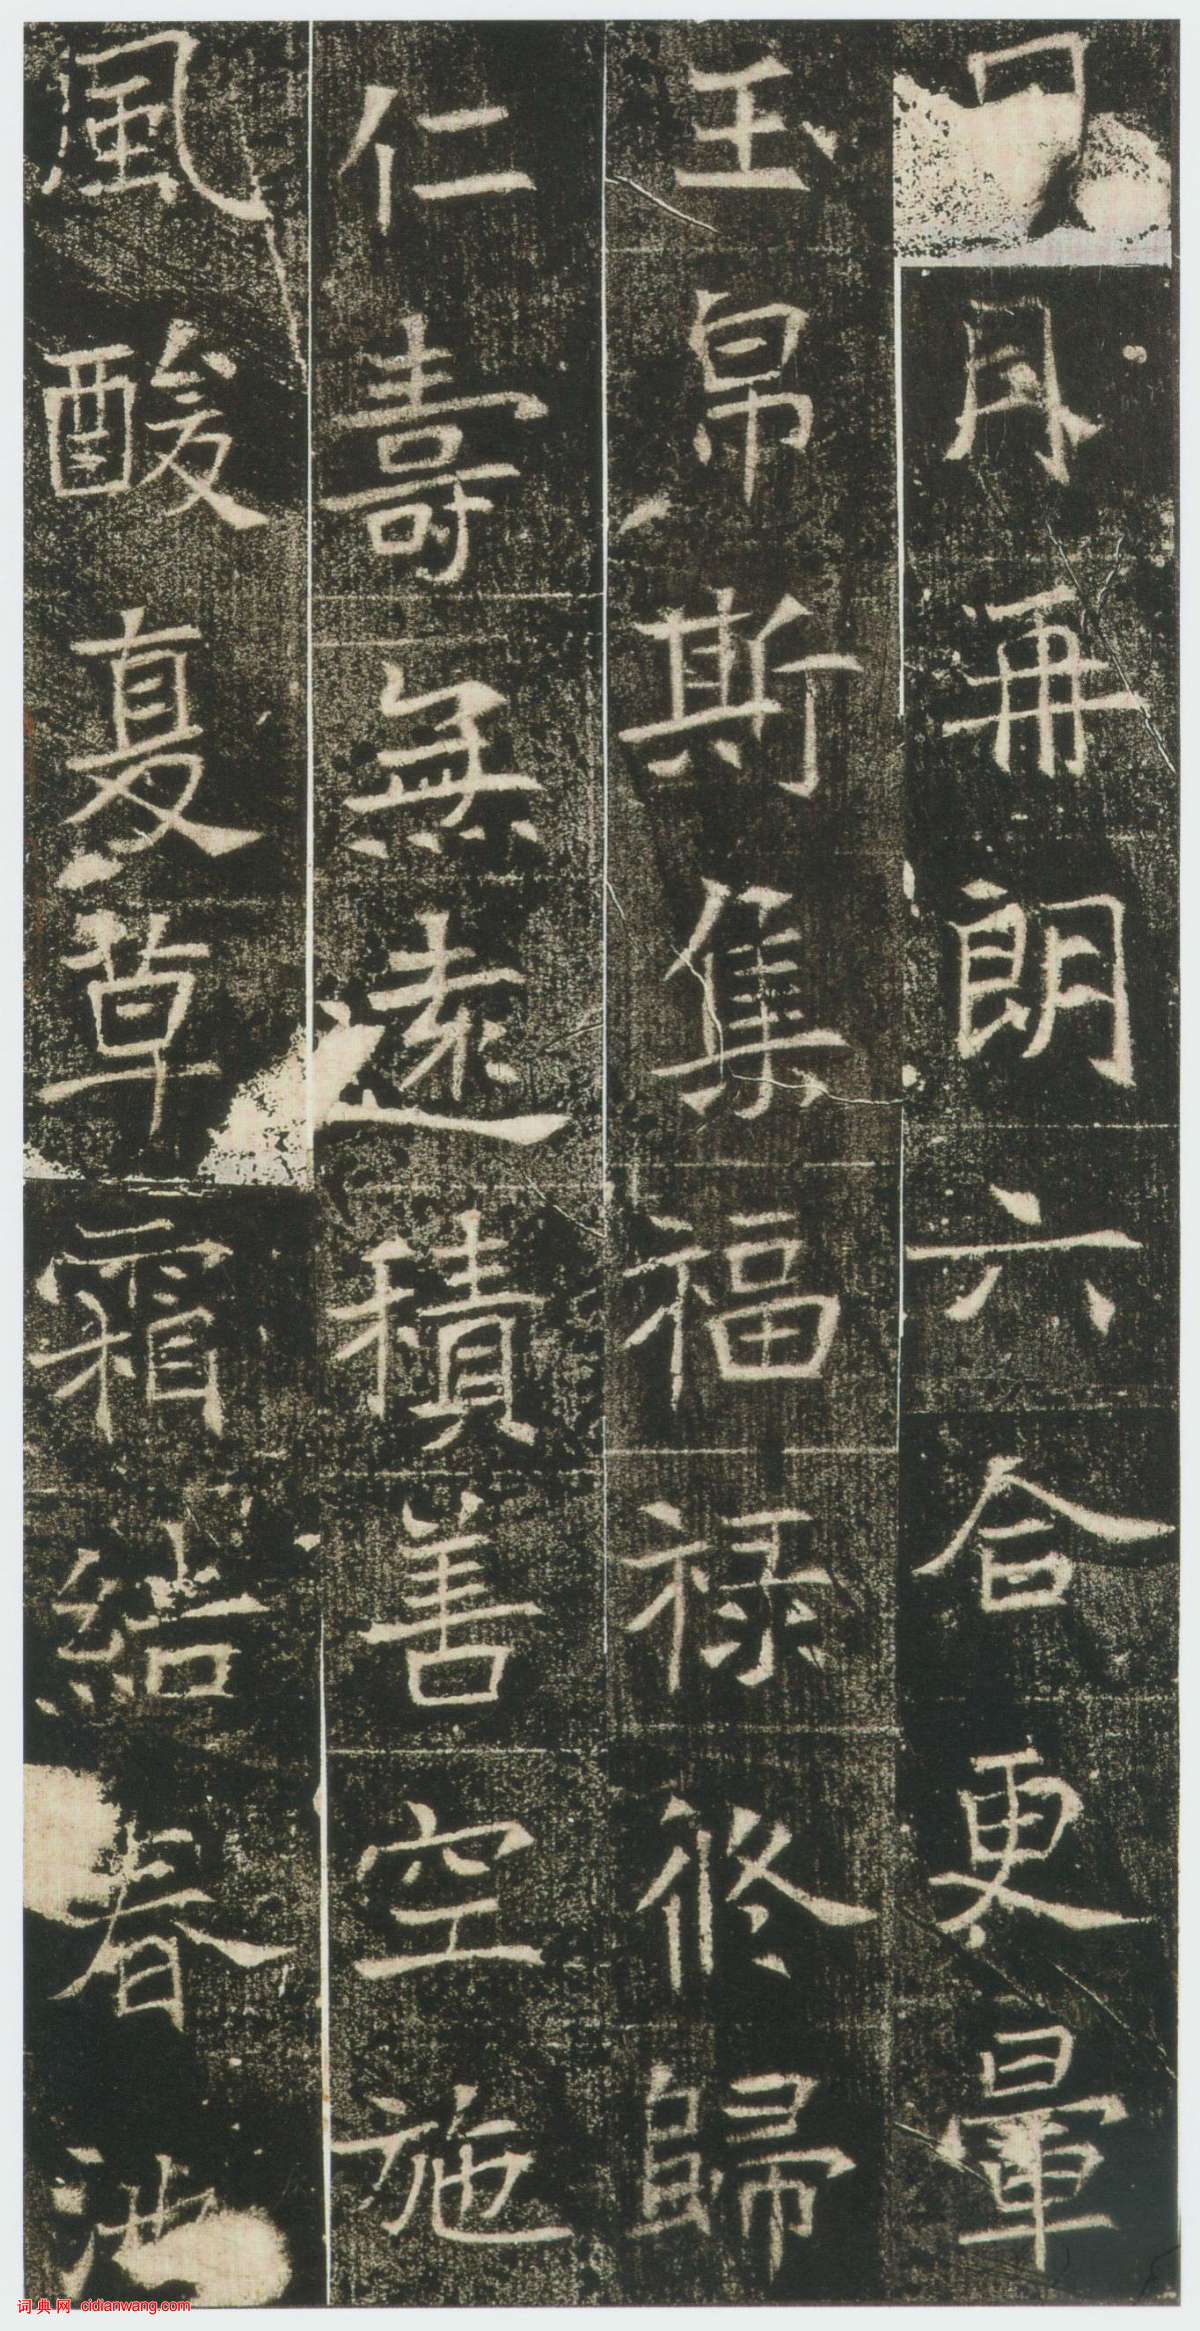 日月再朗六合更暈
玉帛斯集福祿修歸
仁壽無遠積善空施
風酸夏草霜結春池
词典网 cidianwang.com